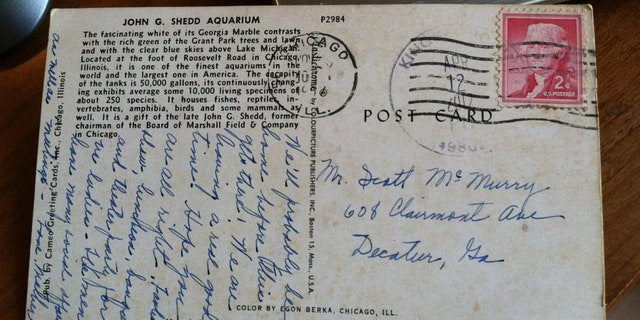 JOHN G. SHEDD AQUARIUM
P2984
The fascinating white of its Georgia Marble contrasts
with the rich green of the Grant Park trees and lawn
and with the clear blue skies above Lake Michigan.
Located at the foot of Roosevelt Road in Chicago,
Illinois, it is one of the finest aquariums in the
world and the largest one in America. The capacity
of the tanks is 50,000 gallons, its continuously chang-
ing exhibits average some 10,000 living specimens of
about 250 species. It houses fishes, reptiles, in-
vertebrates, amphibia, birds and some mammals as
well. It is a gift of the late John G. Shedd, former
chairman of the Board of Marshall Field & Company
in Chicago.
Pub. by Cameo Greeting Cards, Inc., Chicago, Illinois
by COLOURPICTURE PUBLISHERS, INC., Boston 15, Mass., U.S.A.
CHICAGO
ILL.
AUG
12
1980
2¢
U.S. POSTAGE
POST CARD
Mr. Scott McMurry
608 Clairmont Ave
Decatur, Ga
We'll probably be
home before this
gets there! We are
having a real good
time. Hope you
are all right.
and theater party for
COLOR BY EGON BERKA, CHICAGO, ILL.